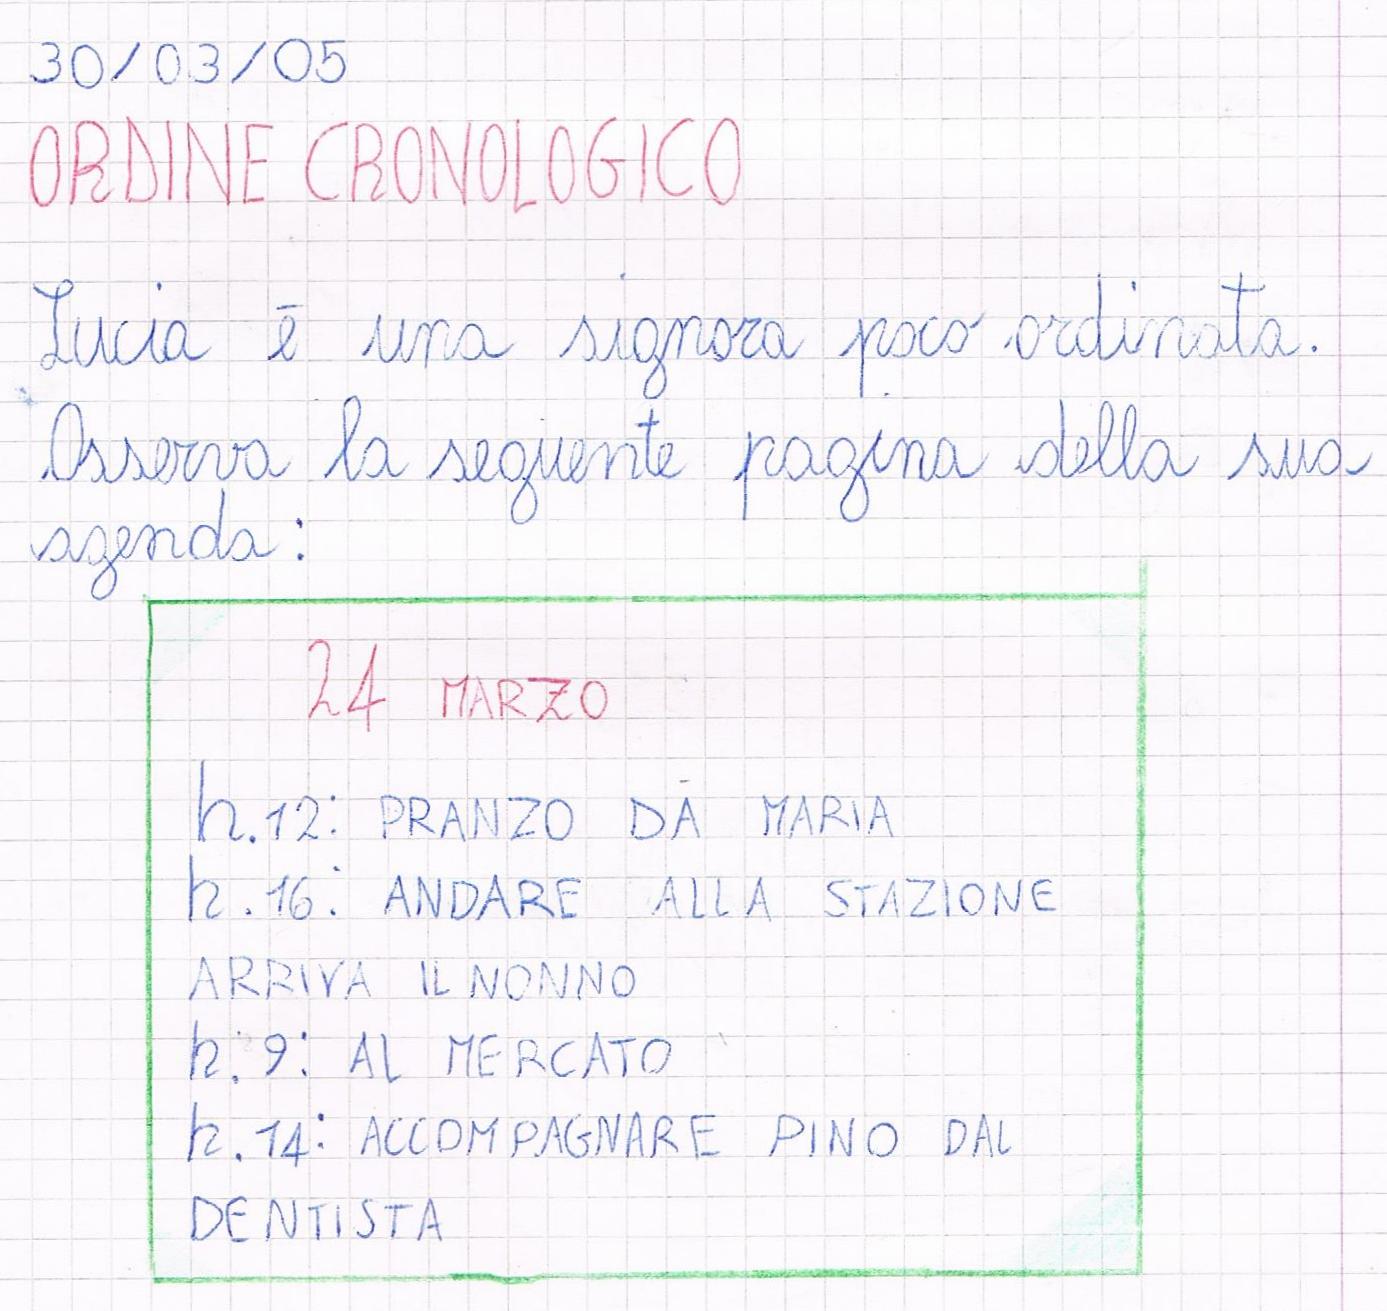 30/03/05
ORDINE CRONOLOGICO
Lucia è una signora poco ordinata.
Osserva la seguente pagina della sua
agenda:
24 MARZO
h.12: PRANZO DA MARIA
h.16: ANDARE ALLA STAZIONE
ARRIVA IL NONNO
h.9: AL MERCATO
h.14: ACCOMPAGNARE PINO DAL
DENTISTA